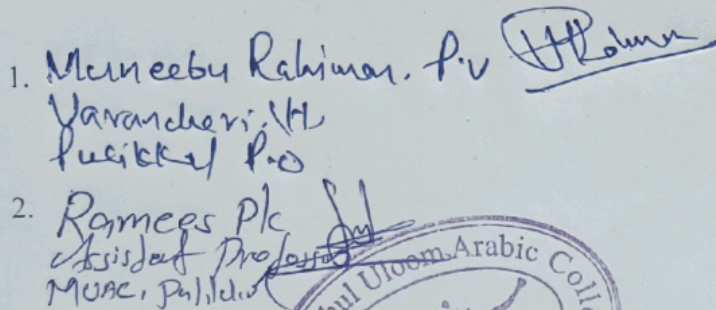 1. Muneebu Rahiman. P.V
Varancheri (H)
Pulikkal P.O
2. Ramees Pk
Assistant Professor
MUAC, Pulikkal
Uloom Arabic